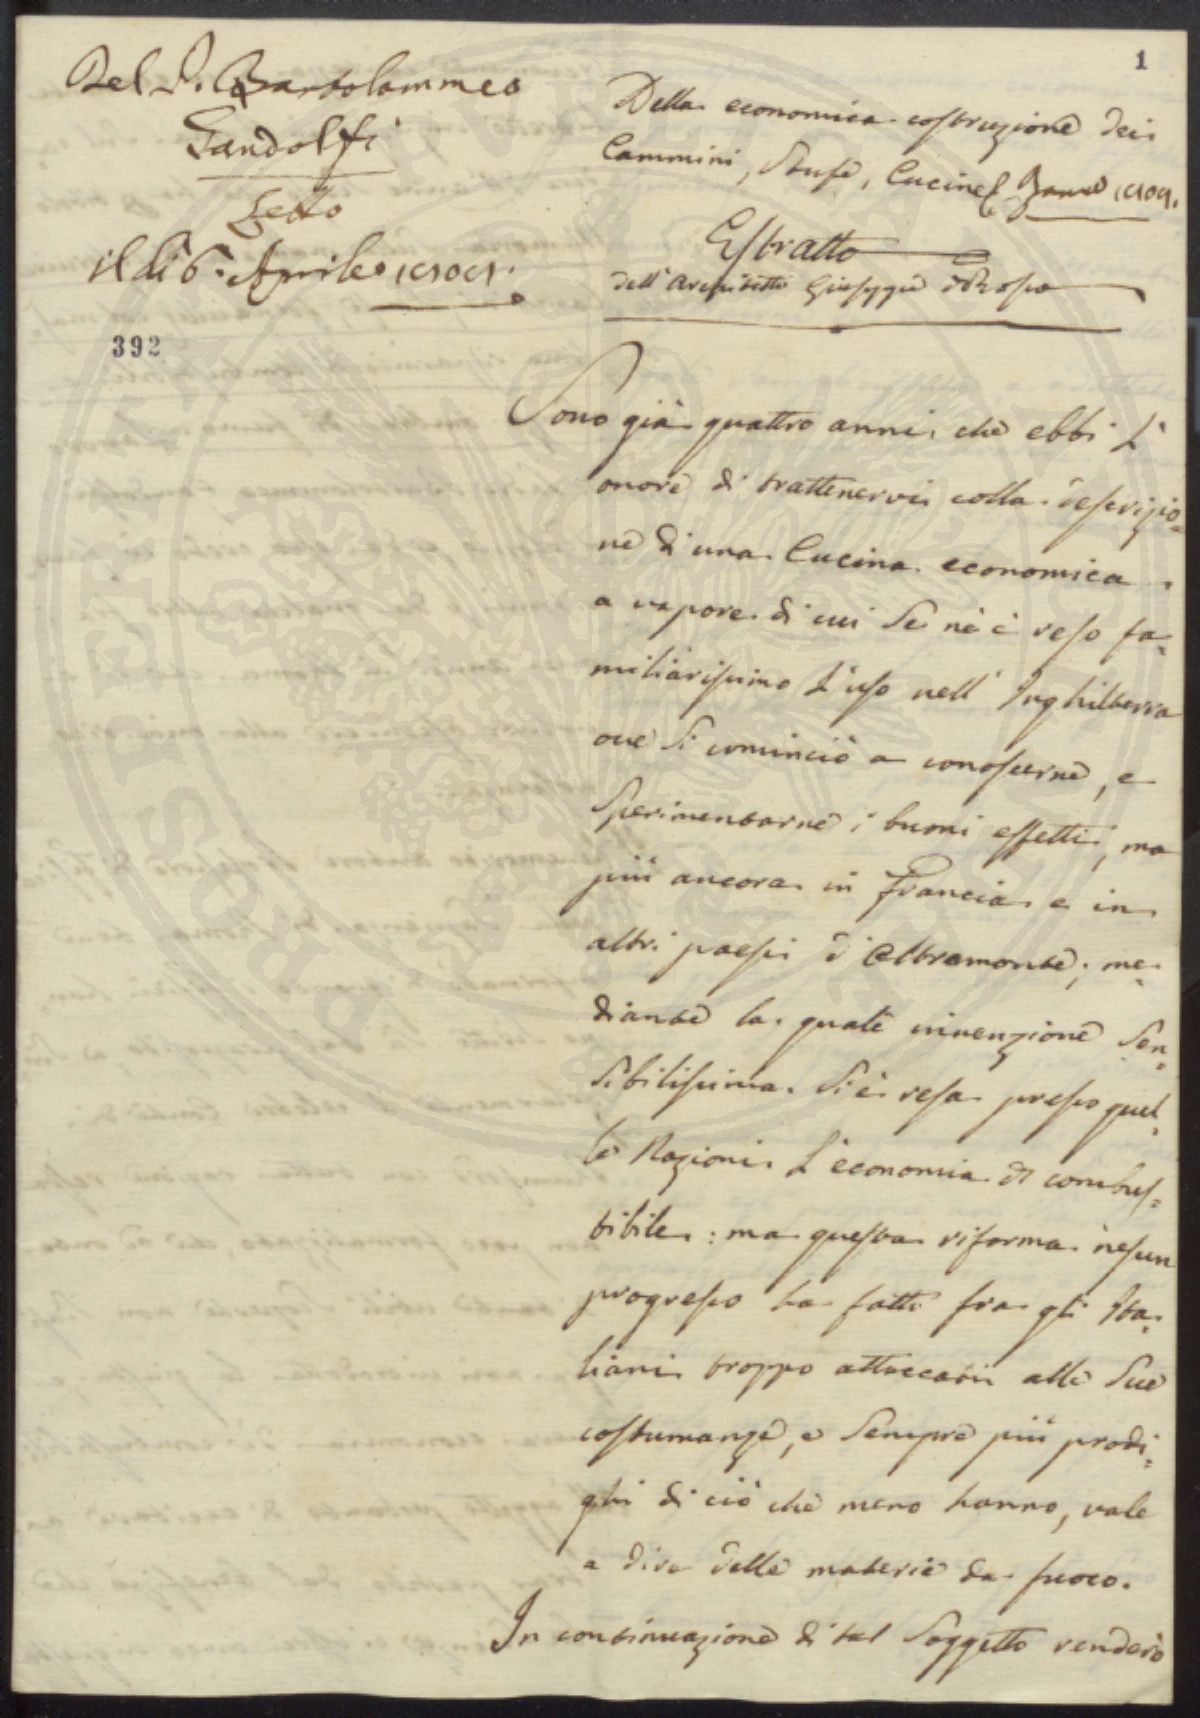 1
Del P. Bartolommeo
Gandolfi
Letto
il dì 6. Aprile 1809.
392
Della economica costruzione dei
Cammini, Stufe, Cucine 1809.
Estratto
dell'Architetto Giuseppe
Sono già quattro anni, che ebbi l'
onore di trattenervi colla descrizio=
ne di una Cucina economica
a vapore di cui se nè è reso fa=
miliarissimo l'uso nell' Inghilterra
ove si cominciò a conoscerne, e
sperimentarne i buoni effetti, ma
più ancora in Francia e in
altri paesi d'Oltremonte; me=
diante la quale invenzione sen=
sibilissima si è resa presso quel=
le Nazioni l'economia di combus=
tibile: ma questa riforma nesun
progresso ha fatto fra gli Ita=
liani troppo attaccati alle sue
costumanze, e sempre più prodi=
ghi di ciò che meno hanno, vale
a dire delle materie da fuoco.
In continuazione di tal Soggetto renderò
PROSPERITÀ